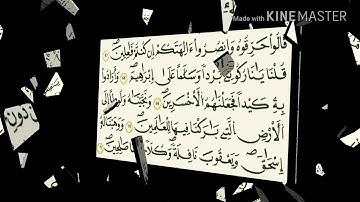 Made with KINEMASTER
قَالُوا حَرِّقُوهُ وَانصُرُوا ءَالِهَتَكُمْ إِن كُنتُمْ فَاعِلِينَ ٦٨
قُلْنَا يَانَارُ كُونِي بَرْدًا وَسَلَامًا عَلَىٰ إِبْرَاهِيمَ ٦٩ وَأَرَادُوا
بِهِ كَيْدًا فَجَعَلْنَاهُمُ الْأَخْسَرِينَ ٧٠ وَنَجَّيْنَاهُ وَلُوطًا إِلَى
الْأَرْضِ الَّتِي بَارَكْنَا فِيهَا لِلْعَالَمِينَ ٧١ وَوَهَبْنَا لَهُ
إِسْحَاقَ وَيَعْقُوبَ نَافِلَةً وَكُلًّا جَعَلْنَا صَالِحِينَ ٧٢